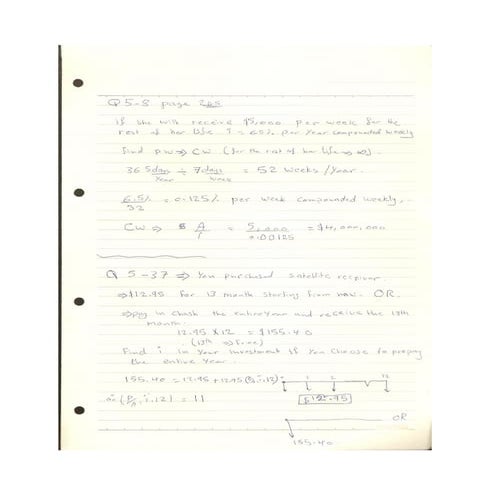 Q 5-8 page 265
if she will receive $5,000 per week for the
rest of her life i = 6.5% per Year compounded weekly
Find PW ⇒ CW (for the rest of her life ⇒ ∞).
365 days/Year ÷ 7 days/week = 52 weeks/Year.
6.5%/52 = 0.125% per week compounded weekly.
CW ⇒ $ A/i = 5,000/0.00125 = $4,000,000
Q 5-37 ⇒ You purchased satellite
⇒ $12.95 for 13 month starting from now. OR
⇒ pay in the entire year and receive the 13th
month.
12.95 x 12 = $155.40
(13th ⇒ free)
Find i in your investment if you choose to
the entire year.
155.40 = 12.95 + 12.95 (P/A, i, 12)
0 1 2 12
$12.95
∴ (P/A, i, 12) = 11
OR
155.40